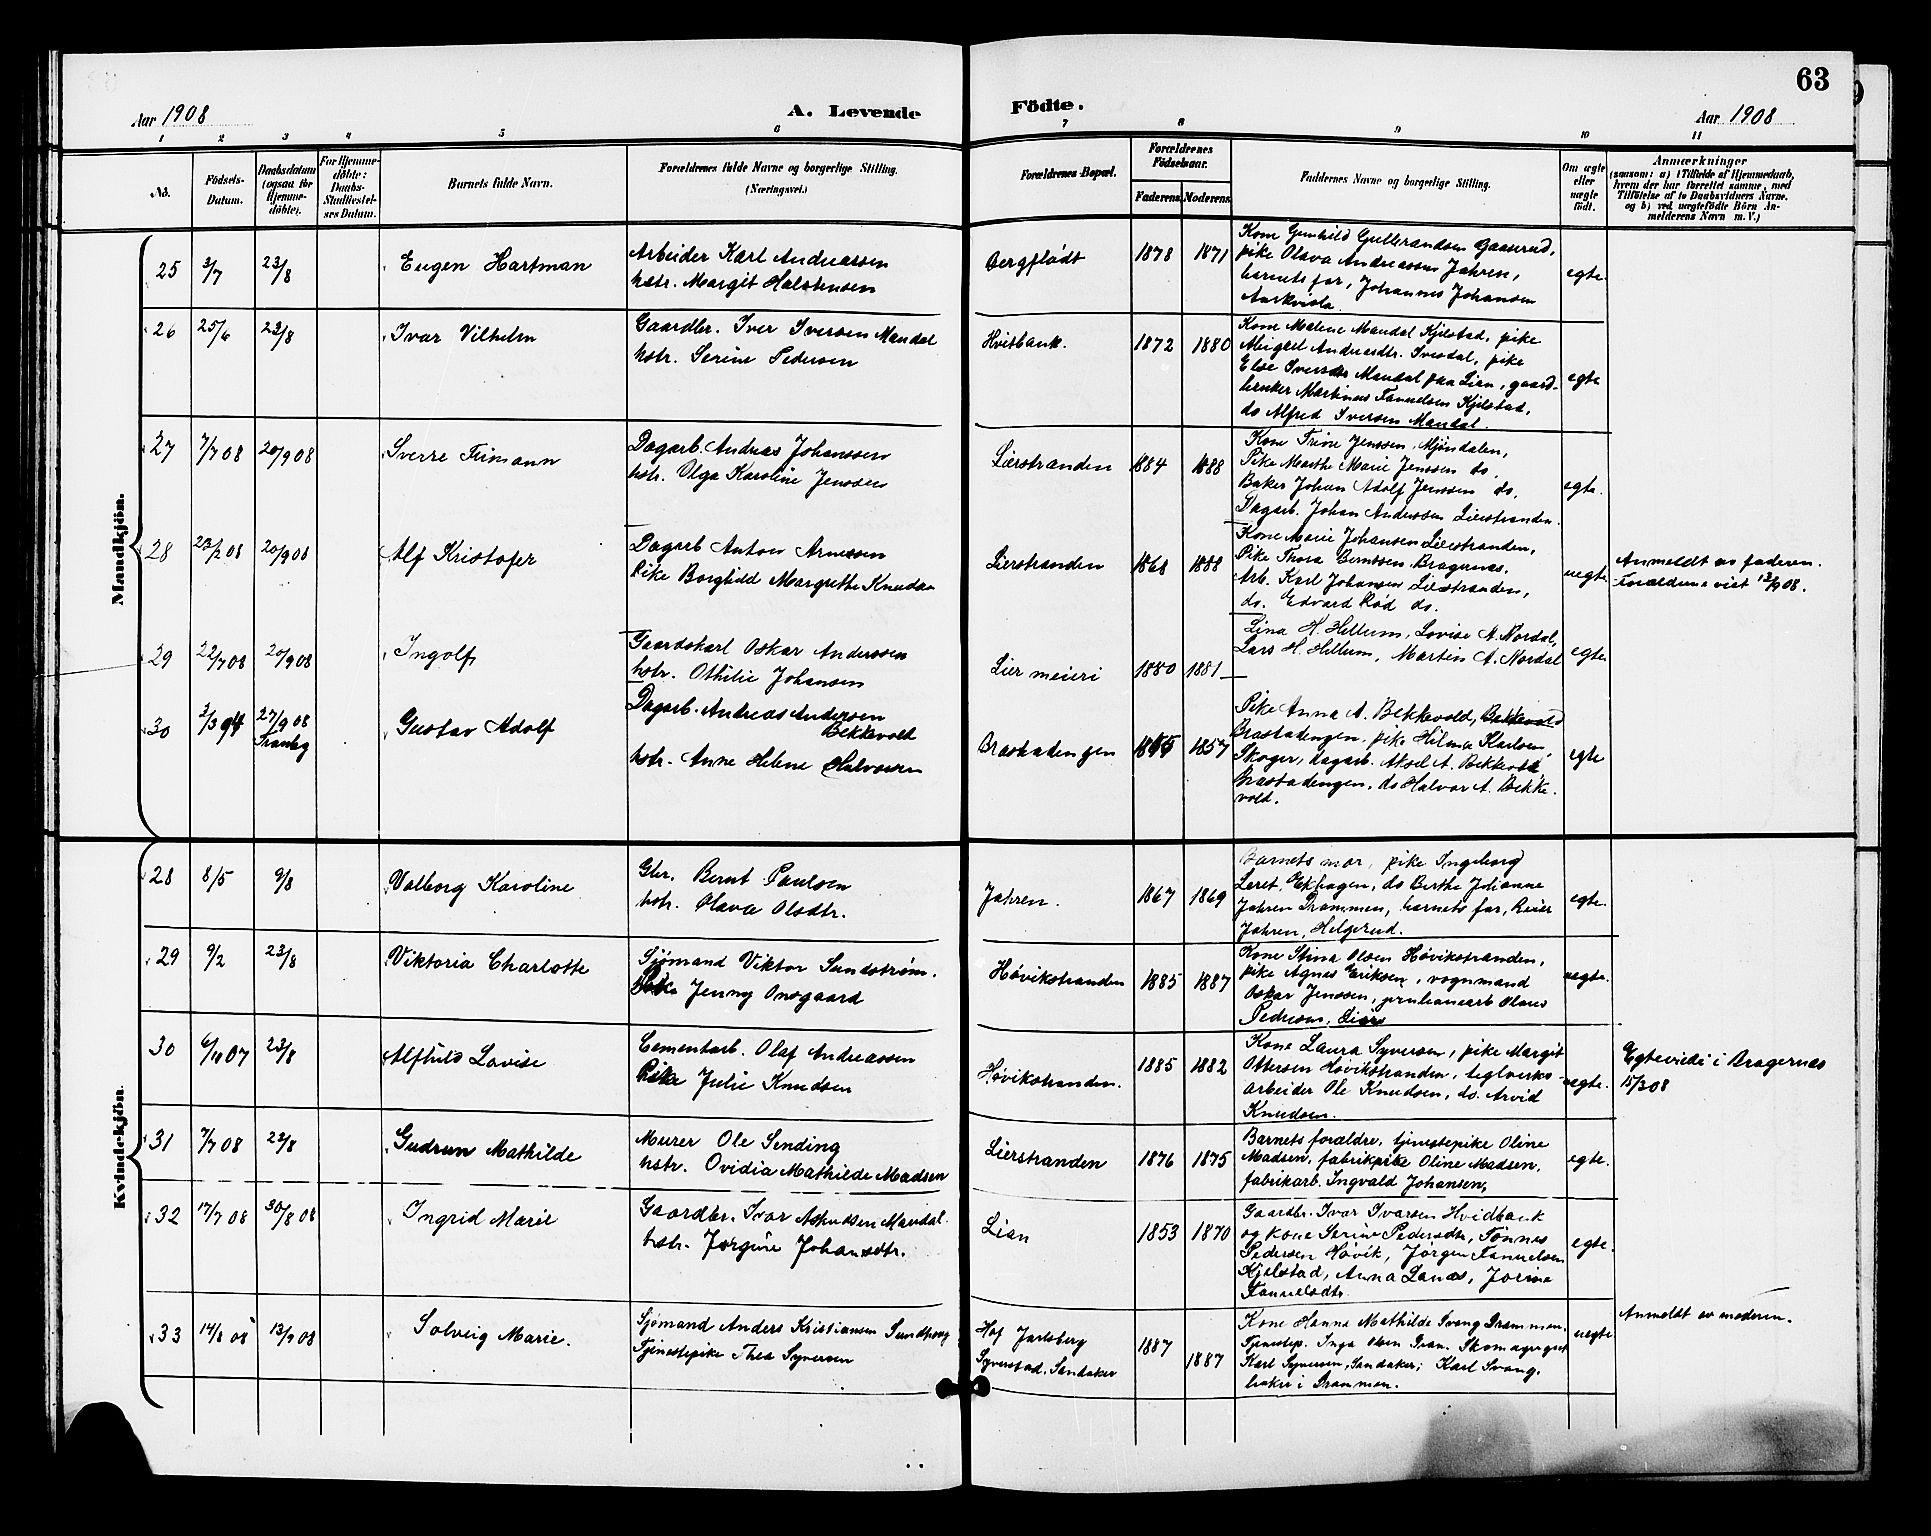 63
Aar 1908 A. Levende Födte. Aar 1908
1 2 3 4 5 6 7 8 9 10 11
No. Födsels-Datum. Daabsdatum (ogsaa for Hjemme-döbte). For Hjemme-döbte: Daabs-Stadfæstel-ses Datum. Barnets fulde Navn. Forældrenes fulde Navne og borgerlige Stilling. (Næringsvei.) Forældrenes Bopæl. Forældrenes Födselsaar. Faderens Moderens Faddernes Navne og borgerlige Stilling. Om ægte eller uægte födt. Anmærkninger (saasom: a) i Tilfælde af Hjemmedaab, hvem der har forrettet samme, med Tilföielse af to Daabsvidners Navne. og b) ved uægtefödte Börn An-melderens Navn m. V.)
Mandkjön.
25 3/7 23/8 Eugen Hartman
Arbeider Karl Andreassen
hstr. Margit Halstensen
Bergflødt 1878 1871
Kone Gunhild Gulbrandsen Gaaserud,
pike Olava Andreassen Jahren,
barnets far, Johannes Johansen
egte
26 25/6 23/8 Ivar Vilhelm
Gaardbr. Iver Iversen Mandal
hstr. Serine Pedersen
Hvitbank. 1872 1880
Kone Malene Mandal Kjelstad, pike
Andreasdtr. Ivesdal, pike
Else Iversdtr Mandal paa Lian, gaard-
bruker Martinus Fannelsen Kjelstad,
do Alfred Iversen Mandal.
egte
27 7/7 08 20/9 08 Sverre Trimann
Dagarb. Andreas Johanssen
hstr. Olga Karoline Jenssen
Lierstranden 1884 1888
Kone Trine Jenssen, Mjøndalen,
Pike Marthe Marie Jenssen do.
Baker Johan Adolf Jenssen do.
Dagarb. Johan Anderssen Lierstranden.
egte.
28 23/2 08 20/9 08 Alf Kristofer
Dagarb Anton Arnessen
Pike Borghild Margrethe Knudsen
Lierstranden 1868 1888
Kone Marie Johansen Lierstranden,
Pike Thora Berntsen Bragernæs.
Arb. Karl Johansen Lierstranden,
do. Edvard Rød do.
uegte
Anmeldt av faderen.
Forældrene viet 13/9 08.
29 22/7 08 20/9 08 Ingolf
Gaardskarl Oskar Anderssen
hstr. Othilie Johansen
Lier meieri 1880 1881
Lina H. Hellum, Lovise A. Nordal,
Lars H. Hellum, Martin A. Nordal
egte
30 2/3 94 27/9 08 Tranby Gustav Adolf
Dagarb. Andreas Andersen
Bekkevold
hstr. Anne Helene Halvorsen
Brastadengen 1857
Pike Anna A. Bekkevold, Bekkevold
Brastadengen, pike Hilma Karlsen,
Skoger, dagarb. Aksel A. Bekkevold
Brastadengen, do Halvor A. Bekke-
vold.
egte
Kvindekjön.
28 8/5 9/8 Valborg Karoline
Gbr. Bernt Paulsen
hstr. Olava Olsdtr.
Jahren. 1867 1869
Barnets mor, pike Ingeborg
Leret, Ekhagen, do Berthe Johanne
Jahren Drammen, barnets far, Reier
Jahren, Helgerud.
egte.
29 9/2 23/8 Viktoria Charlotte
Sjømand Viktor Sundstrøm.
Pike Jenny Onsgaard
Høvikstranden 1885 1887
Kone Stina Olsen Høvikstranden,
pike Agnes Eriksen, vognmand
Oskar Jenssen, Olaus
Pedersen, Lier
uegte.
30 6/10 07 23/8 Alfhild Lovise
Cementarb. Olaf Andreassen
Pike Julie Knudsen
Høvikstranden. 1885 1882
Kone Laura Syversen, pike Margit
Ottersen Høvikstranden, teglverks-
arbeider Ole Knudsen, do. Arvid
Knudsen.
uegte.
Egteviede i Bragernæs
15/3 08
31 7/7 08 23/8 Gudrun Mathilde
Murer Ole Sending
hstr. Ovidia Mathilde Madsen
Lierstranden 1876 1875
Barnets forældre, tjenestepike Oline
Madsen, fabrikpike Oline Madsen,
fabrikarb. Ingvald Johansen,
egte.
32 17/7 08 30/8 08 Ingrid Marie
Gaardbr. Ivar Mandal
hstr. Jørgine Johansdtr.
Lian 1853 1870
Gaardbr. Ivar Ivarsen Hvidbank
og kone Serine Pedersdtr, Tønnes
Pedersen Høvik, Jørgen Fannelsen
Kjelstad, Anna Lanæs, Jorine
Fannelsdtr.
egte.
33 14/1 08 13/9 08 Solveig Marie.
Sjømand Anders Kristiansen Sundhaug
Tjenestepike Thea Syversen
Hof Jarlsberg
Syverstad, Sandaker
1887 1887
Kone Hanna Mathilde Svang Drammen.
Tjenestep. Inga Olsen Dram. Skomagersv.
Karl Syversen, Sandaker; Karl Svang,
baker i Drammen.
uegte
Anmeldt av moderen.